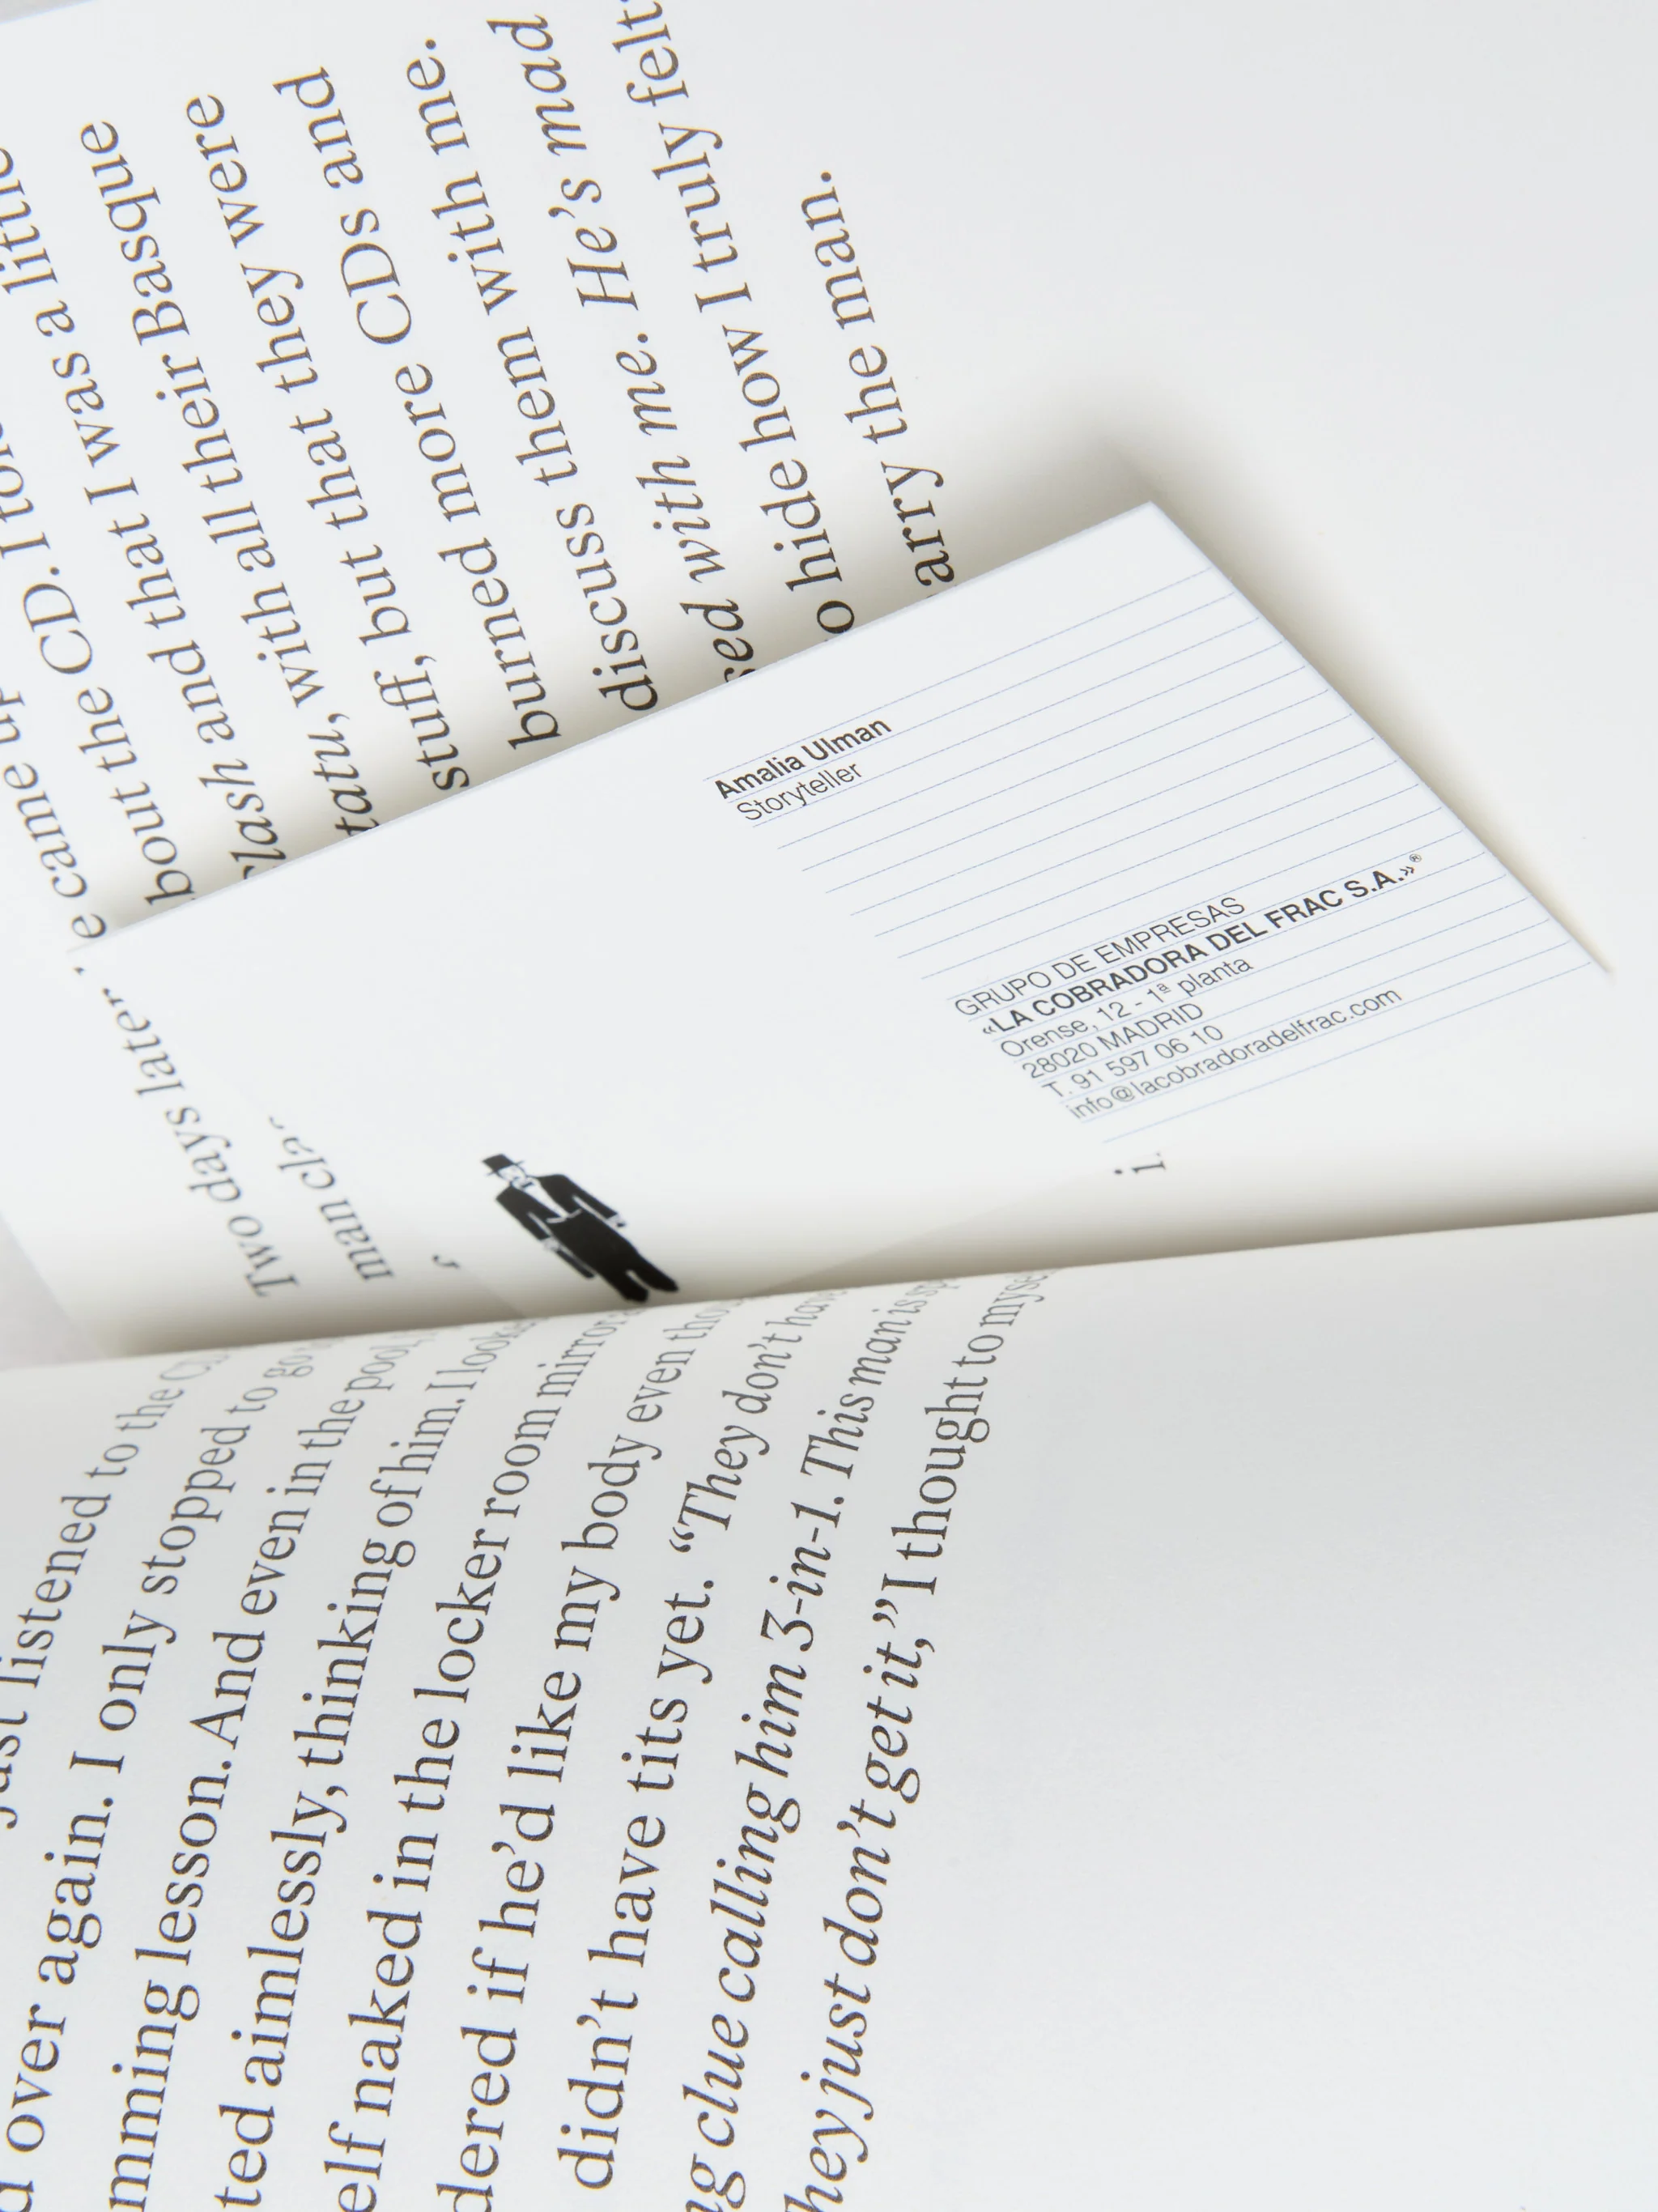 about the CD. I
lash and that I was a little
tatu, with all their Basque
stuff, but that they were
burned more CDs and
discuss them with me.
sed with me. He's mad
o hide how I truly felt
arry the man.
Two days later
man
Amalia Ulman
Storyteller
GRUPO DE EMPRESAS
«LA COBRADORA DEL FRAC S.A.»®
Orense, 12 - 1ª planta
28020 MADRID
T. 91 597 06 10
info@lacobradoradelfrac.com
just listened to the
over again. I only stopped to go
mming lesson. And even in the pool,
ted aimlessly, thinking of him. I looke
elf naked in the locker room mirror
dered if he'd like my body even thou
didn't have tits yet. “They don't have
ng clue calling him 3-in-1. This man is sp
hey just don't get it,” I thought to myse